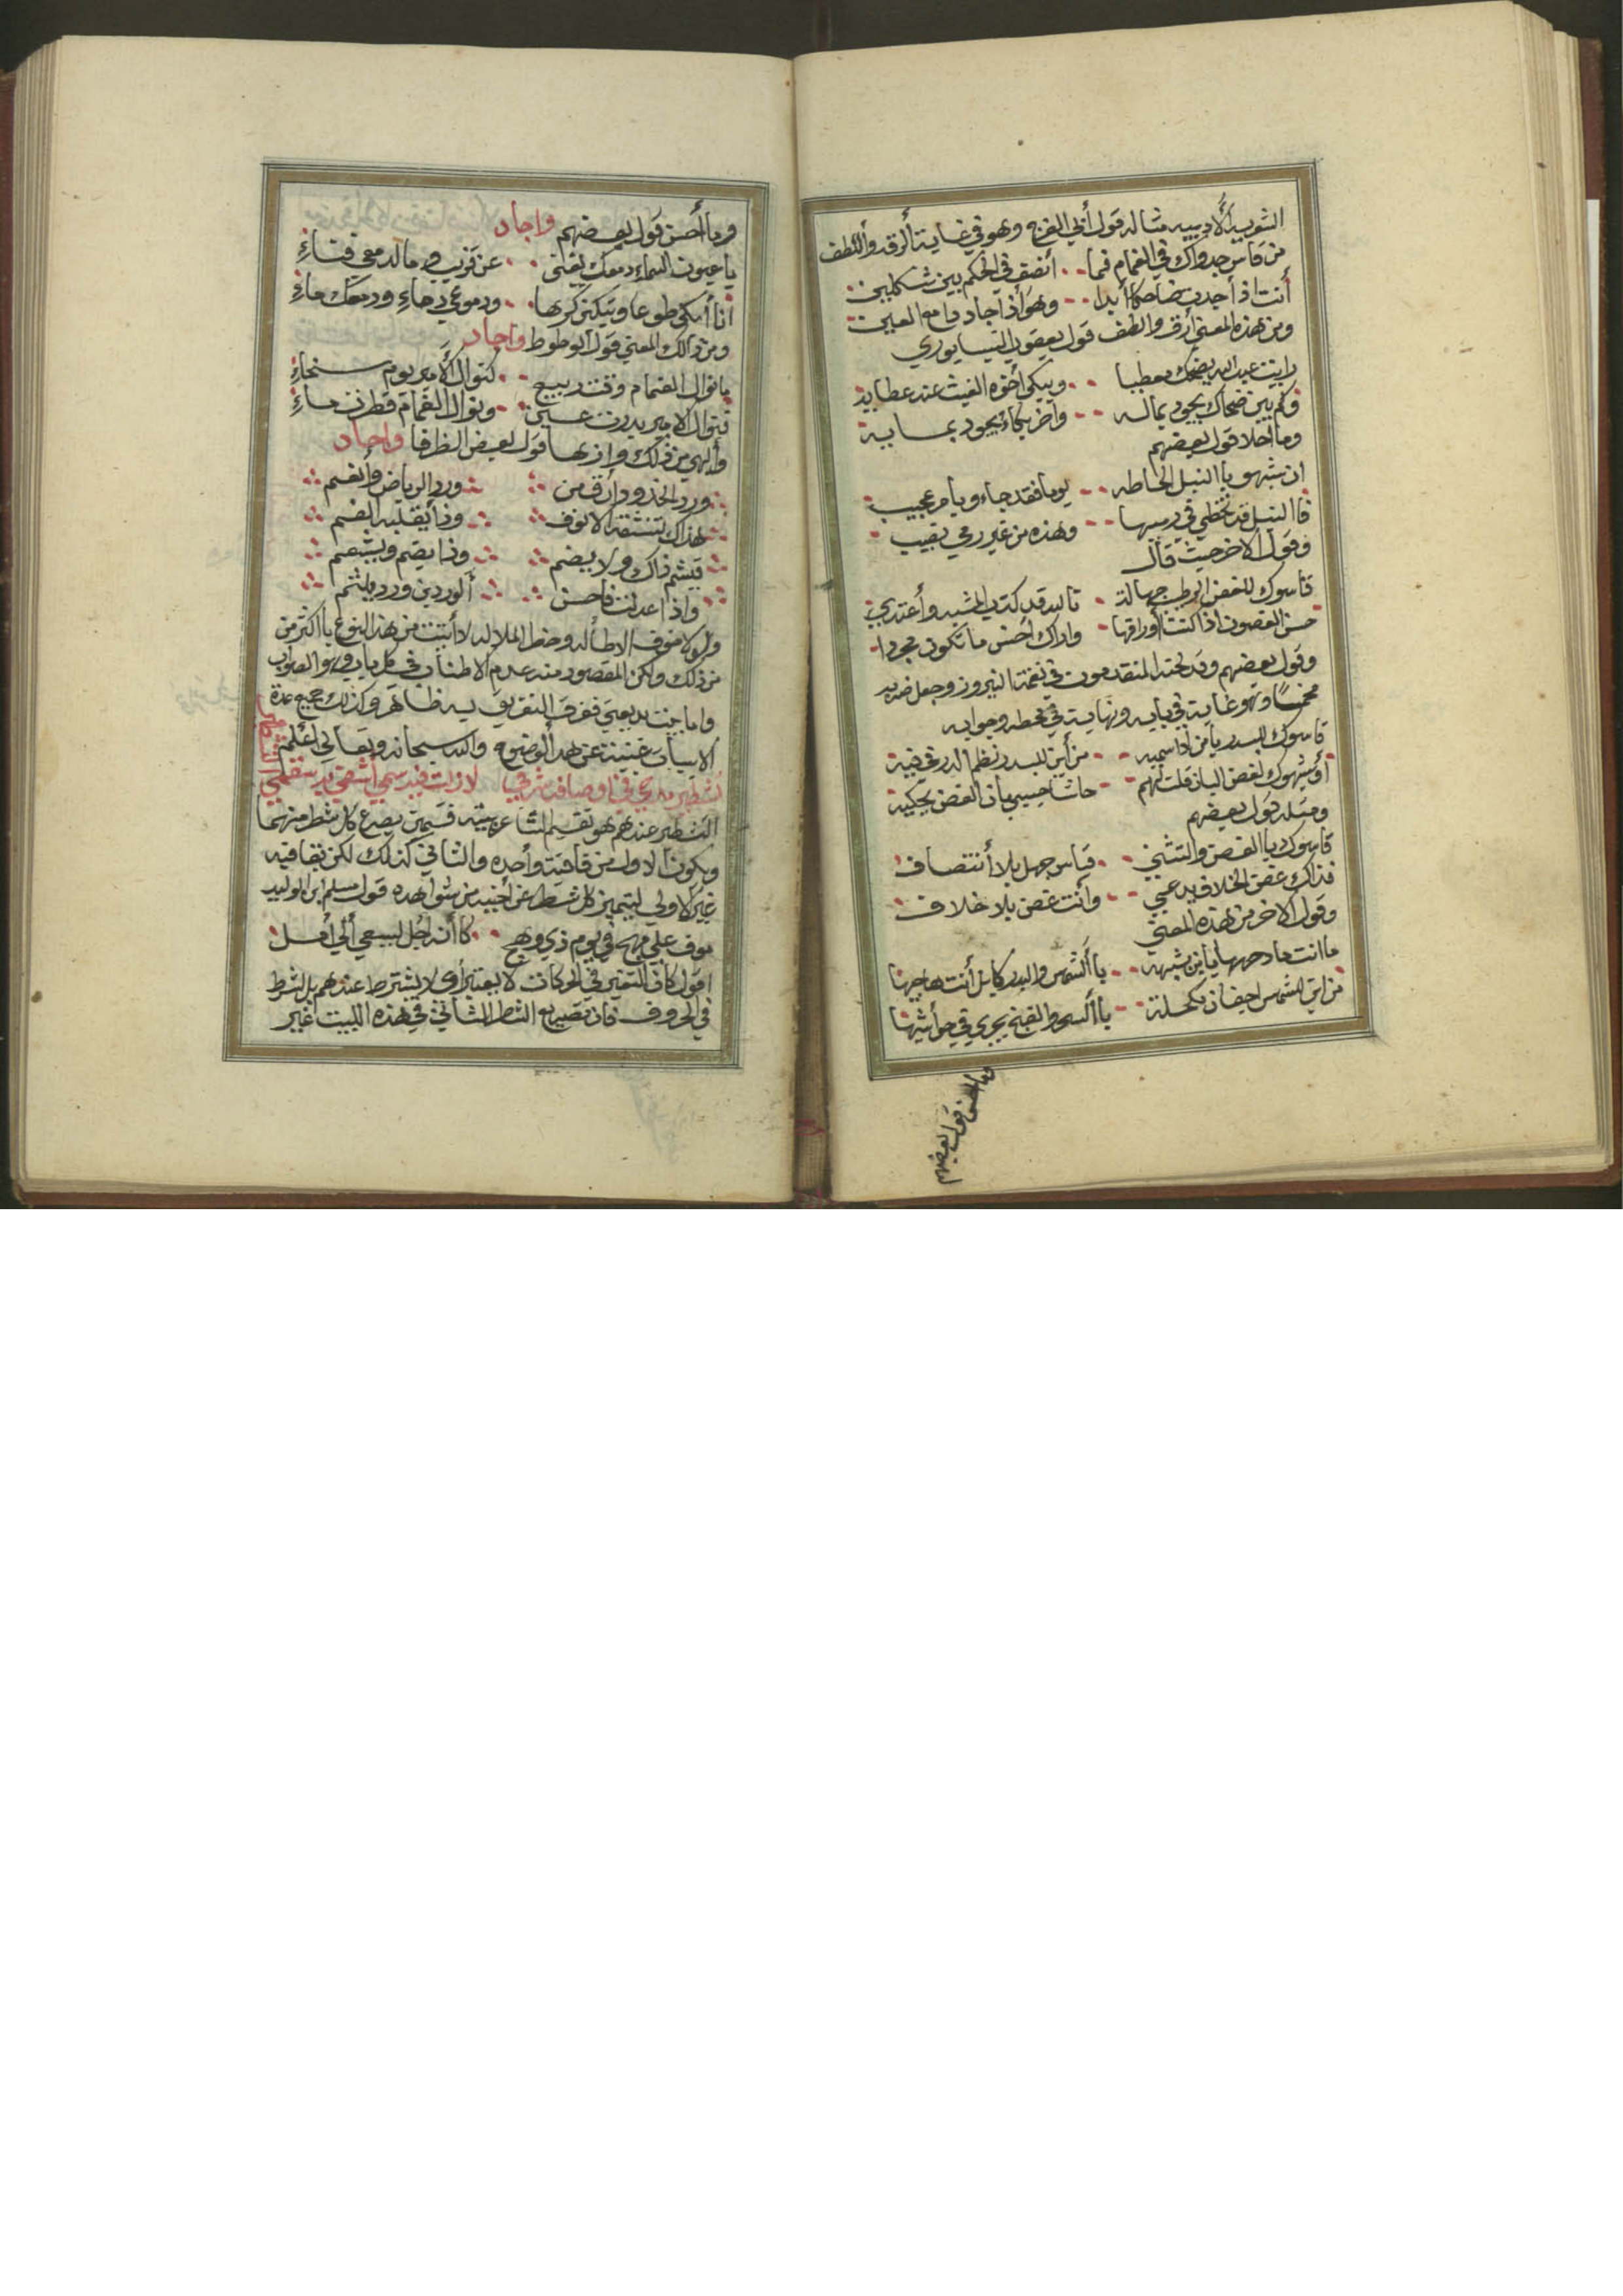 الشوبيه الأدبيه مثاله قول أبي الفرج وهو في غاية ألرقه وأللطف
من قاس جدواك في الغمام فما • • أنصف في الحكم بين شكلين
أنت اذ أجدت ضاحكا أبدا • • وهو أذ اجاد دامع العين
ومن هذه المعنى أرق والطف قول يعقوب النيسابوري
رايت عبيد الله يضحك معطيا • • ويبكي أخوه الغيث عند عطايه
وكم بين ضحاك يجود بماله • • وآخر بكاء يجود بمايه
وما احلا قول بعضهم
ان شبهو باالنبل الحاظه • • يوما فقد جاءو بامر عجيب
فاالنبل قد تخطي في رميها • • وهذه من غير رمي تصيب
وقول الاخر حيث قال
قاسوك للغصن الرطيب جهالة • تالله قد كذب المشبه وأعتدي
حسن الغصون اذا اكتست أوراقها • واراك أحسن ما تكون مجردا
وقول بعضهم وقد لحنه المتقدمون في نغمة النيروز وجعل ضربه
مخمسا وهو غاية في بابه ونهاية في خطه وجوابه
قاسوك للبدر يامن اذا سميه • • من أين للبدر نظم الدر في فيه
أو شبهوك لغصن البان قلت لهم • • حاشا حبيبي بان الغصن يحكيه
ومثله قول بعضهم
قاسوك باالغصن والتثني • • قياس جهل بلا أنتصاف
فذاك غصن الخلاف يدعي • • وأنت غصن بلا خلاف
وقول الاخر من هذه المعنى
ما انت مادحها يا من يشبهه • • باالشمس والبدر كابل أنت هاجيها
من اين للشمس اجفان مكحلة • • باالسحر والغنج يجري في حواشيها
وما احسن قول بعضهم
وما أحسن قول بعضهم واجاد
يا عيون السماء دمعك يفنى • • عن قريب وما لدمعي فناء
أنا أبكي طوعا وتبكين كرها • • ودموعي دماء ودمعك ماء
ومن ذالك المعني قول الوطوط واجاد
ما نوال الغمام وقت ربيع • • كنوال الأمير يوم سخاء
فنوال الامير بدرت عين • • ونوال الغمام قطرت ماء
وألهي من ذلك وازها قول لعيض الظرفا واجاد
ورد الخدود أرق من • • ورد الرياض وأنعم
هذاك تنشقه الانوف • • وذا يقبله الفم
فيشم ذاك ولا يضم • • وذا يضم ويشمم
واذا عدلت فاحسن • • ألوردين ورد يلثم
ولولا خوف الاطاله وحظ الملاله لاأثبت من هذ النوع باأكثر من
من ذلك ولكن المقصود منه عدم الاطناب في كل باب وهو الصواب
واما بيت بديعيي ففرق التفريق به ظاهر وكذلك جميع عدة
الابيات غنيته عن هد الوضوح والله سبحانه وتعالي أعلم
تشطير مدحي في اوصافه شرفي لا زلت فيه سمي أشقي به سقمي
التشطير عندهم هو تقسيم الشاعر بيته قسمين يصرع كل شطر منهما
ويكون الاول من قافيت وأحده والثاني كذلك لكن بقافيه
غير الاولي ليتميز كل شطر عن أخيه من شواهده قول مسلم ابن الوليد
موف علي مهج في يوم ذي وهج • • كاأنه أجل يسعي ألي أمل
اقول كاف التغير في الحركات لا يعتبر أي لا يشترط عندهم بل الشرط
في الحروف فان تصريع الشطر الثاني في هذه البيت غير